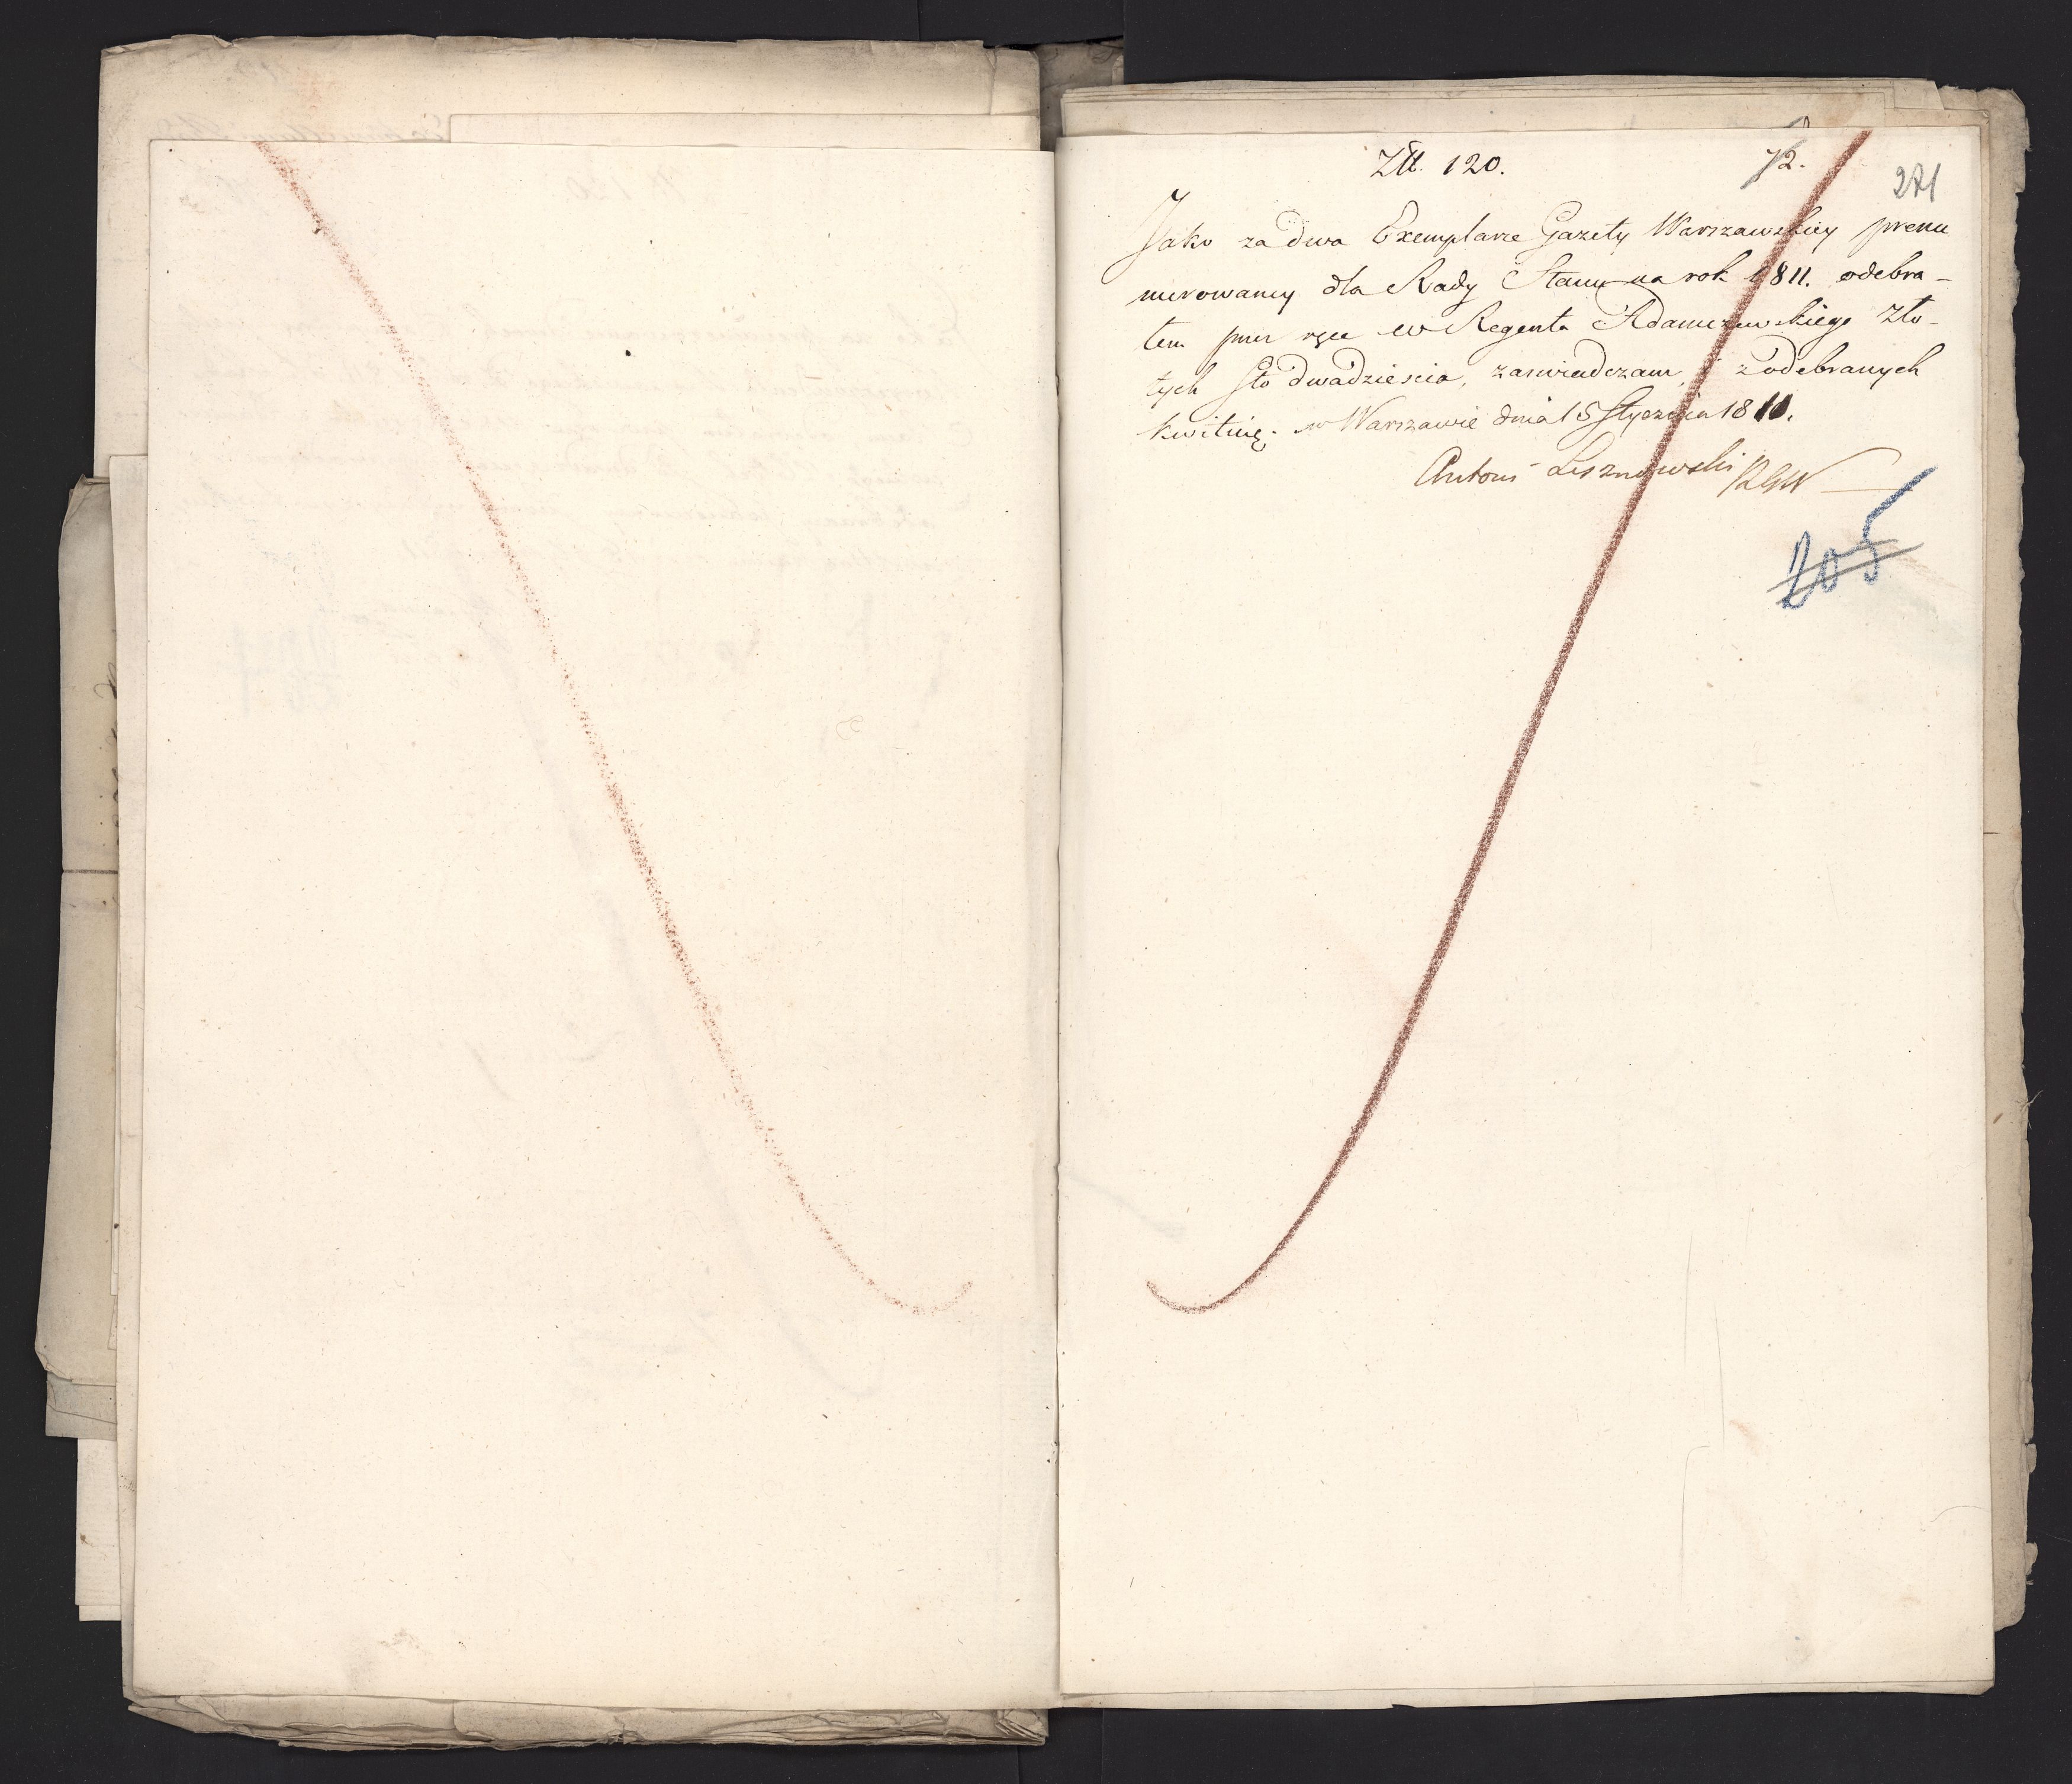 Złt. 120.
72.
271
Jako za dwa Exemplarze Gazety Warszawskiey prenu
merowaney dla Rady Stanu na rok 1811. odebra-
łem przez ręce W Regenta Adamczewskiego Zło-
tych sto dwadzieścia, zaświadczam, i z odebranych
kwituię. w Warszawie dnia 15 Stycznia 1811.
Antoni Lesznowski RGW
205